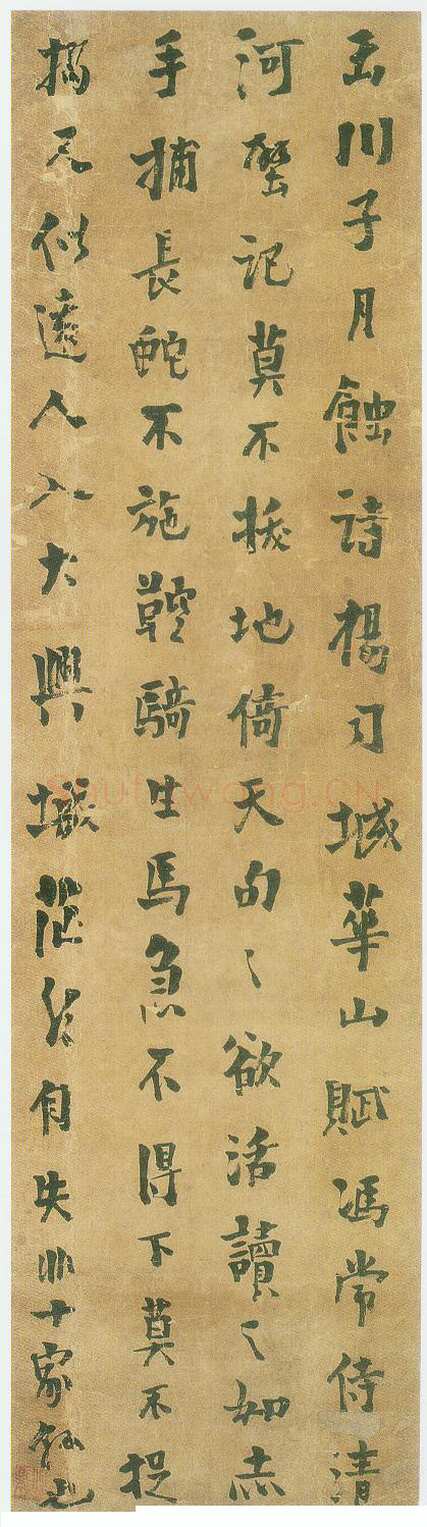 玉川子月蝕詩楊司城華山賦馮常侍清
河壂记莫不拔地倚天句〻欲活讀〻如赤
手捕長蛇不施鞚騎生馬急不得下莫不捉
搦又似遠人入大興城茫然自失